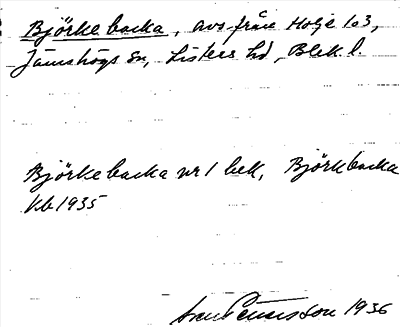 Björkebacka, avs från Holje 1o3,
Jämshögs sn, Listers hd, Blek. l.
Björkebacka nr 1 bek, Björkbacka
kb 1935
Pettersson 1936